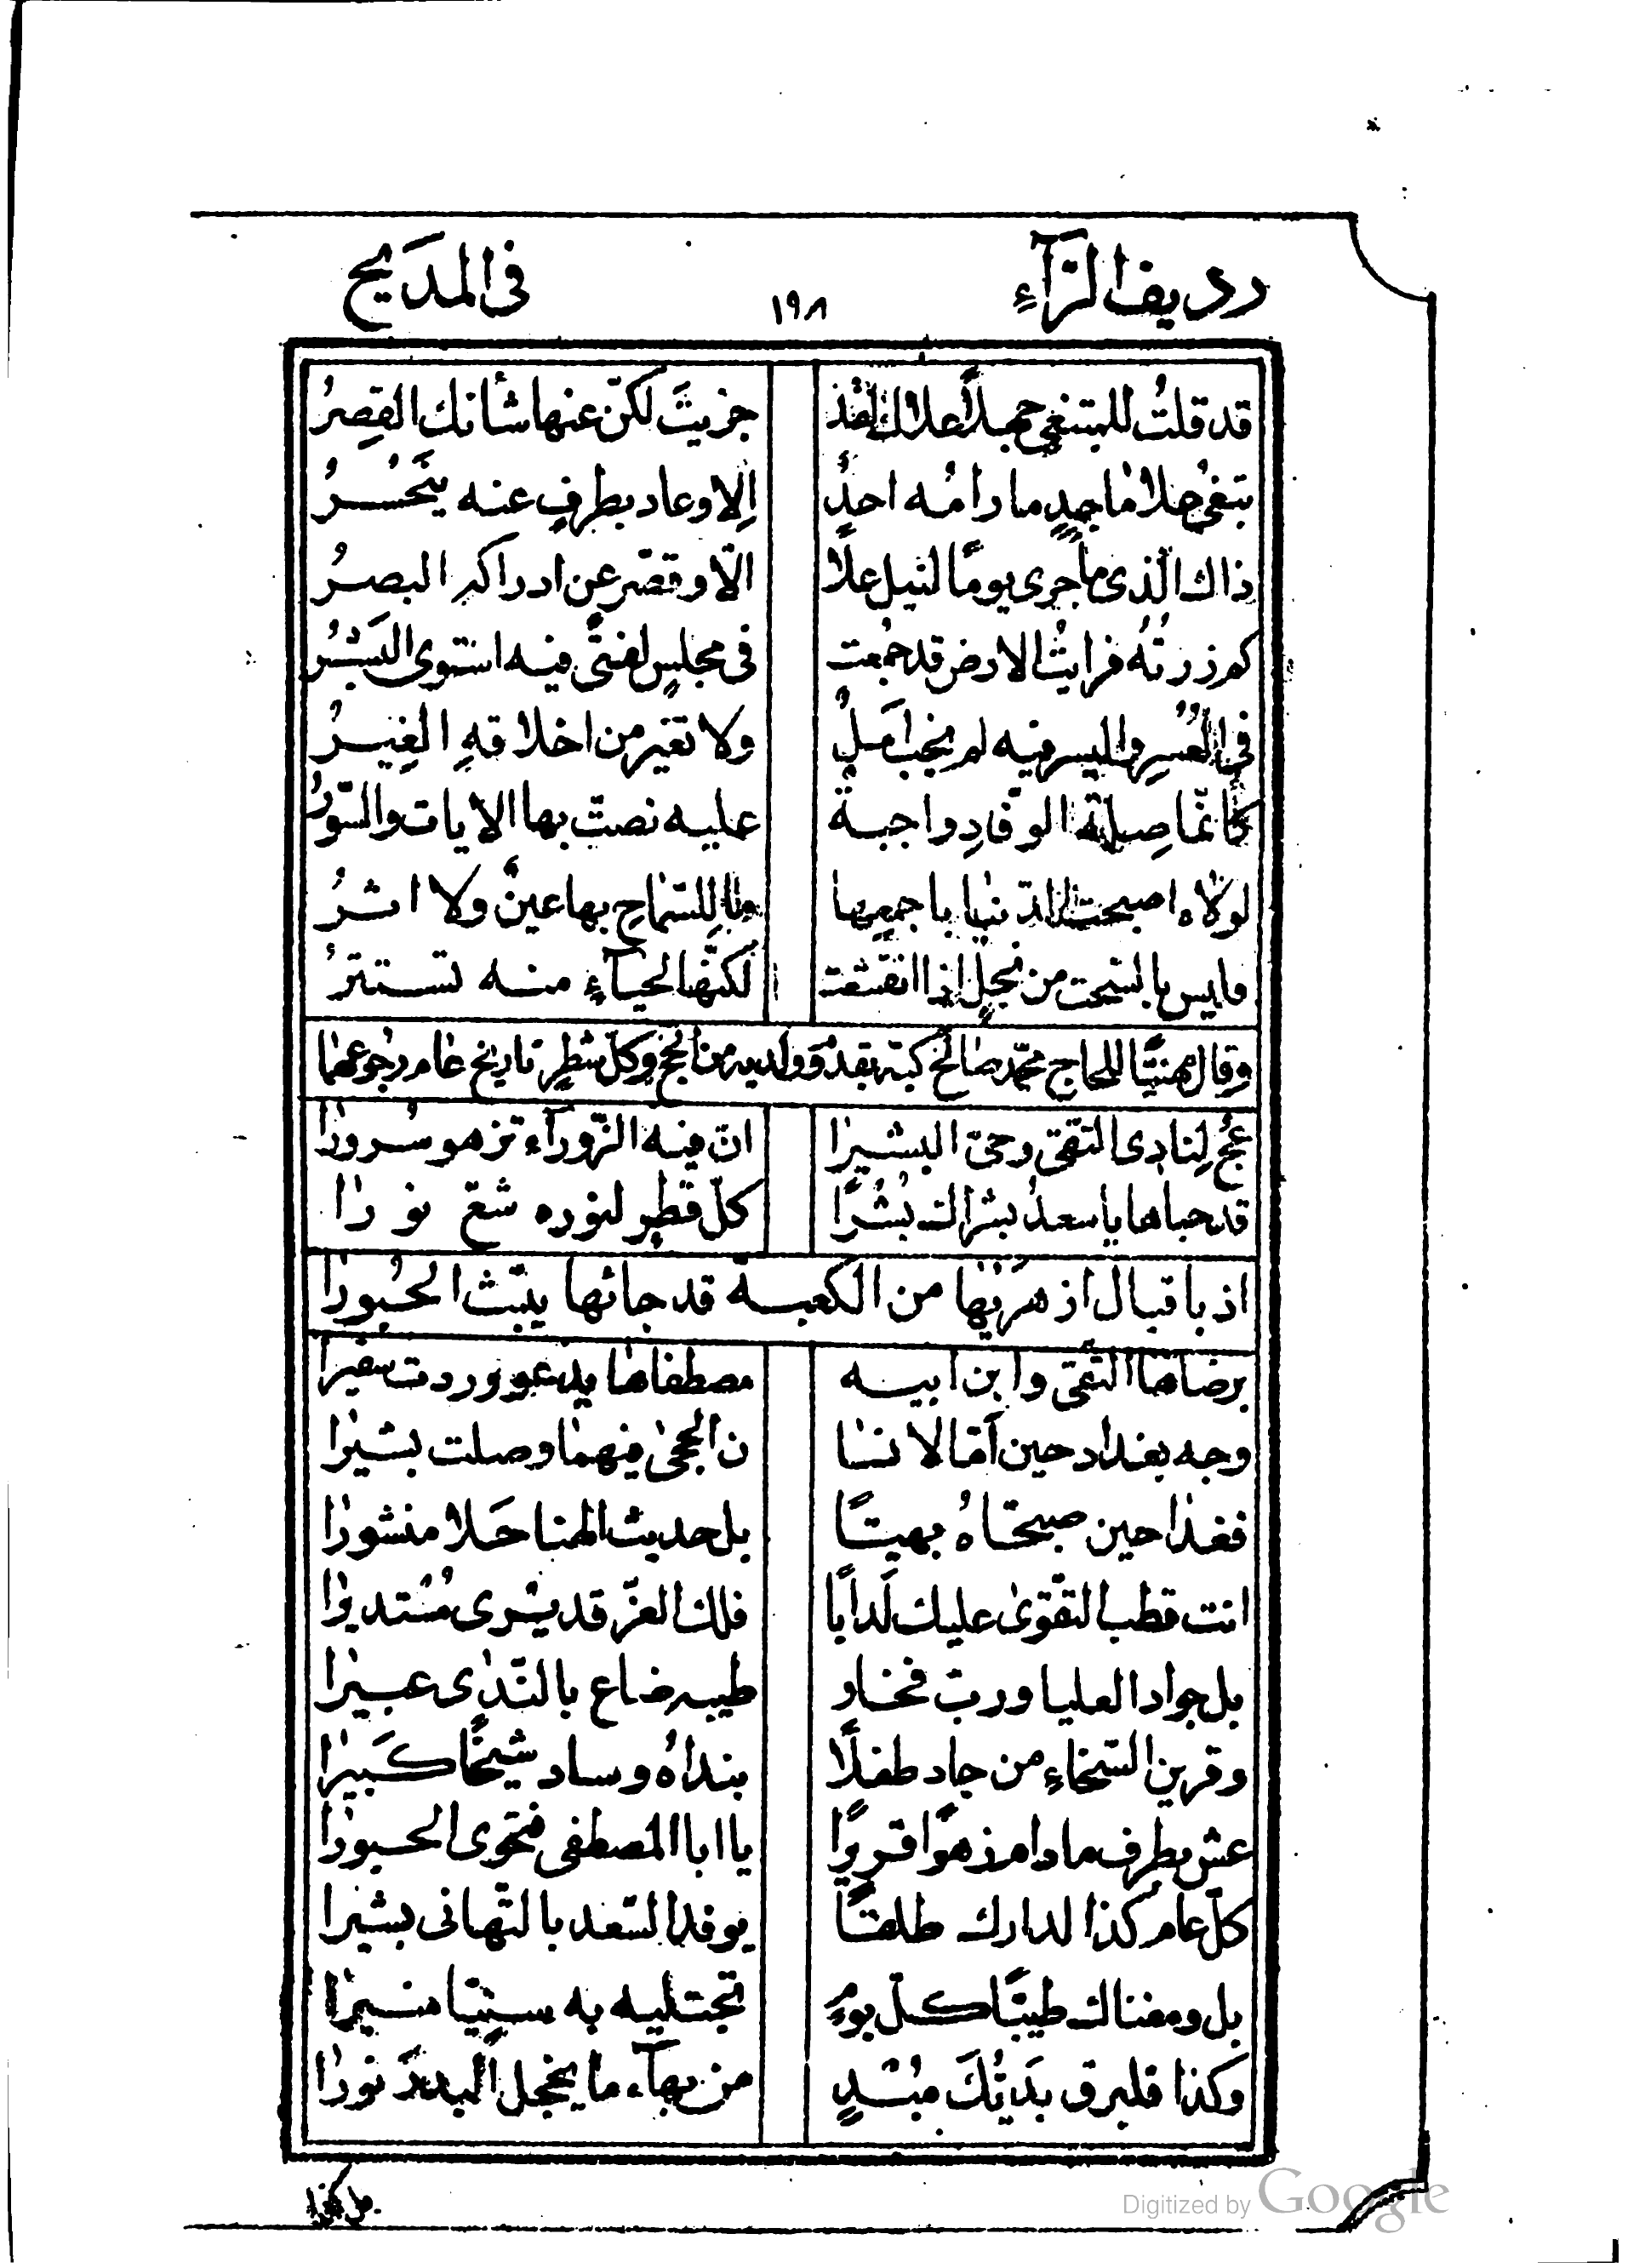 رديف الرّآءِ ١٩٨ فى المدَيح
قد قلتُ للمبتغى جهلاً علاك لقد جزيتَ لكنّ عنها شأنك القِصرُ
تبغى علا ماجدٍ ما رامُه احدٌ اِلا وعاد بطرفٍ عنه ينحُسرُ
ذاك الّذى ما جرى يومًا لنيل علًا الّا وقصّر عن ادراكه البصرُ
كم زرتُه فرايتُ الارض قد جمُعت فى مجلسٍ لفتىً فيه استوى البَشرُ
فى العُسرِ واليسر فيه لم يخب املٌ ولا تغير من اخلاقهِ الغِيرُ
كأنّما صِلة الوفّادِ واجبة عليه نصّت بها الايات والسّورُ
لولاه اصبحت الدّنيا باجمعها وما لِلسّماحِ بها عينٌ ولا اثرُ
وليس بالسّحت من بخلٍ اذا انقشعت لكنّها لحيآءٍ منه تستترُ
وقال مهنيًّا للحاج محمّد صالح كبّه بقدوم ولديه من الحج وكلّ شطرٍ تاريخ عام رجوعهما
عُج لِنادى التقى وحىّ البشيرا انّ فيه الزّورآء تزهو سُرورا
قد حباها يا سعدُ بشراك بُشُرًا كلّ قطرٍ لنوره شعّ نورا
اذ باقبال ازهريها من الكعبة قد جائها يبّث الحُبورا
برضاها التقى وابن ابيه مصطفاها يد وردت سفيرا
وجه بغداد حين آمّا لانسا ن الحجى فيهما وصلت بشيرا
فغدا حين صبحّاهُ بهيّاً بل حديث الهنا حَلا منشورا
انت قطب التّقوى عليك لَدابًا فلك العزّ قد يسْرى مُسُتديرا
بل جواد العليا وربّ فخار طيبه ضاع بالنّدى عبيرا
وقرين السّخاءِ من جاد طفلًا بنداهُ وساد شيخًا كَبيرا
عش بطرف مادام زهوًا قريرًا يا ابا المصطفى فتحوى الحبورا
كلّ عام كذا لدارك طلقًا يوفد السّعد بالتّهانى بشيرا
بل ومغناك طيبًا كلّ يومٍ تجتليه به سنيّا منيرا
وكذا فلبرق بَديُكَ مبُشدٍ من بهآء ما يخجل البدرَ نورا
Digitized by Google